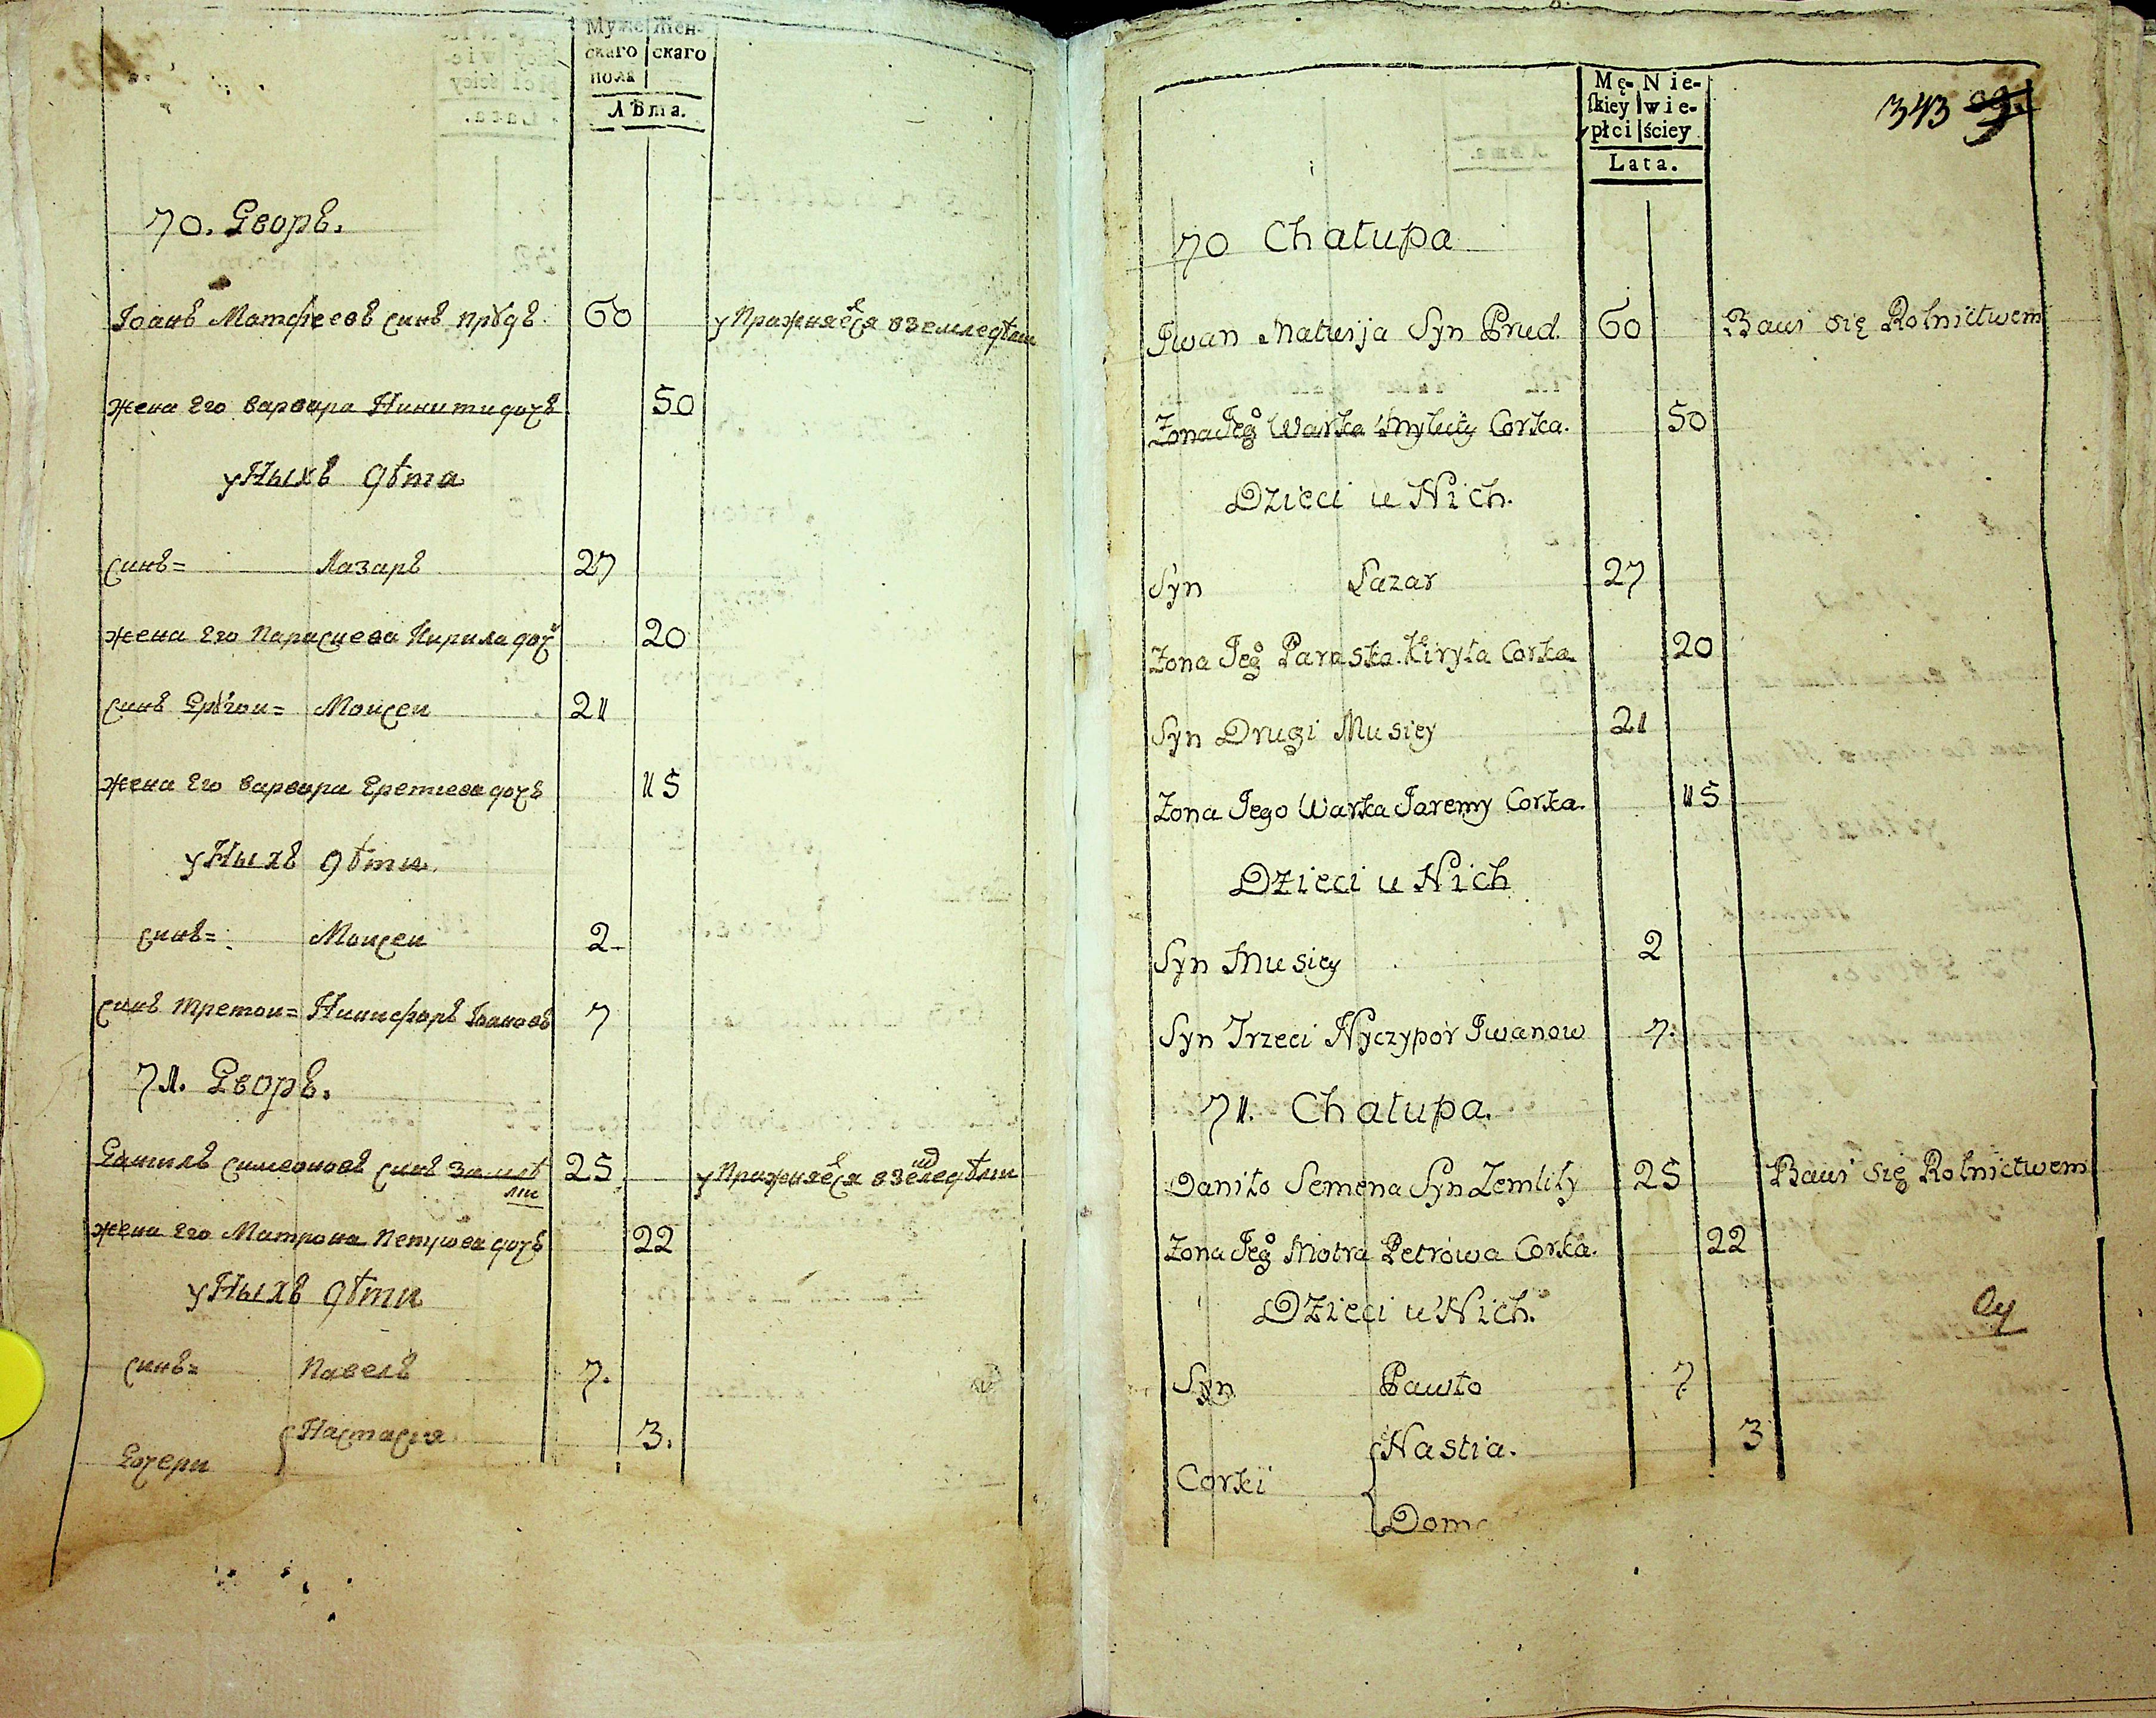 Муже- Жен-
скаго скаго
пола
Лѣта.
70. Дворъ.
Іоанъ Матфеевъ синъ Прудъ 60 упражняется вземледѣли
жена Его варвара Никити дочъ 50
уНыхъ дѣти
синъ= Лазаръ 27
жена Его Параскева Кирила дочъ 20
синъ Другои= Моисеи 21
жена Его варвара Еремиева дочъ 15
уНыхъ дѣти
синъ= Моисеи 2
синъ третои= Никифоръ Іоановъ 7
71. Дворъ.
Даниилъ Симеоновъ синъ 25 упражняется вземледѣли
жена Его Матрона дочъ 22
уНыхъ дѣти
синъ= Павелъ 7.
Дочери Настасия 3.
Mę- Nie-
ſkiey wie-
płci ściey
Lata.
343
70 Chałupa
Iwan Matwija Syn Prud. 60 Bawi się Rolnictwem
Zona Jego Warka Corka. 50
Dzieci u Nich.
Syn Łazar 27
Zona Jego Paraska Kiryła Corka 20
Syn Drugi Musiey 21
Zona Jego Warka Jaremy Corka. 15
Dzieci u Nich
Syn Musiey 2
Syn Trzeci Nyczypor Iwanow 7.
71. Chałupa.
Daniło Semena Syn Zemliły 25 Bawi się Rolnictwem
Zona Jego Motra Petrowa Corka. 22
Dzieci u Nich.
Syn Pawło 7
Corki Nastia. 3